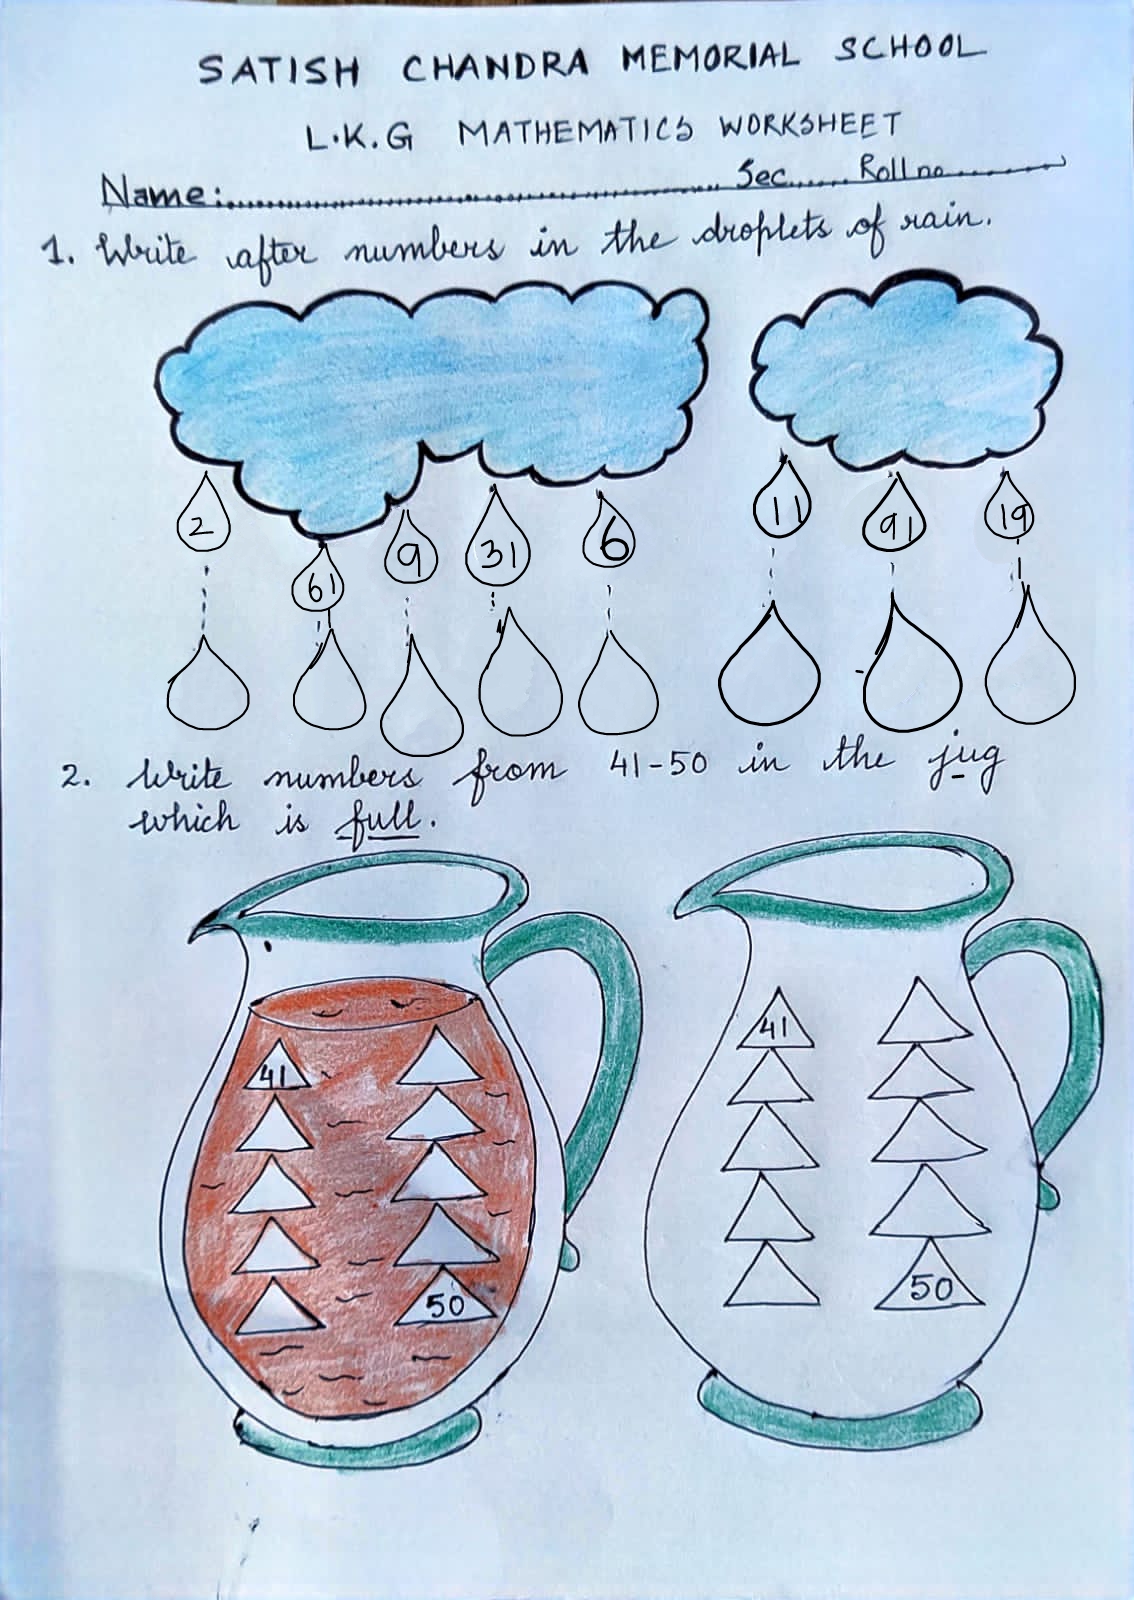 SATISH CHANDRA MEMORIAL SCHOOL
L.K.G MATHEMATICS WORKSHEET
Name:........ Sec...... Roll no........
1. Write after numbers in the droplets of rain.
2 61 9 31 6 11 91 19
2. Write numbers from 41-50 in the jug
which is full.
41 41
50 50